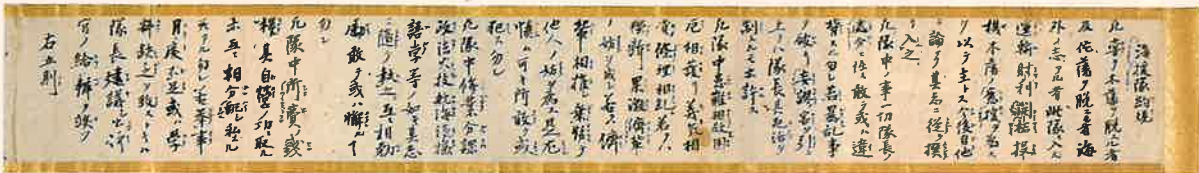 海援隊約規
凡嘗テ本藩ヲ脱スル者
及佗藩ヲ脱スル者海
外ノ志アル者此隊ニ入ル
運輸射利開拓投
機本藩ノ應援ヲ為ス
ヲ以テ主トス今後自他ニ
論ナク其志ニ從テ撰
テ入之
凡隊中ノ事一切隊長ノ
處分ニ任ス敢テ或ハ違
背スル勿レ若暴亂事
ヲ破リ妄謬害ヲ引ニ
至テハ隊長其死活ヲ
制スルモ亦許ス
凡隊中患難相救困
厄相護リ義氣相
責條理相糺若クハ
獨斷果激儕輩
ノ妨ヲ成シ若クハ儕
輩相推乘勢テ
他人ノ妨ヲ為ス是尤
慎ム可キ所敢テ或
犯ス勿レ
凡隊中修業分課
政法火技航海汽機
語學等ノ如キ其志
ニ隨テ執之互ニ相勉
勵敢テ或ハ懈ルコト
勿レ
凡隊中所費ノ錢
糧其自營ノ功ニ取ル
亦互ニ相分配シ私スル
所アル勿レ若擧事
用度不足或ハ學
料缺乏ヲ致ストキハ
隊長建議シ出碕
官ノ給辨ヲ竢ツ
右五則